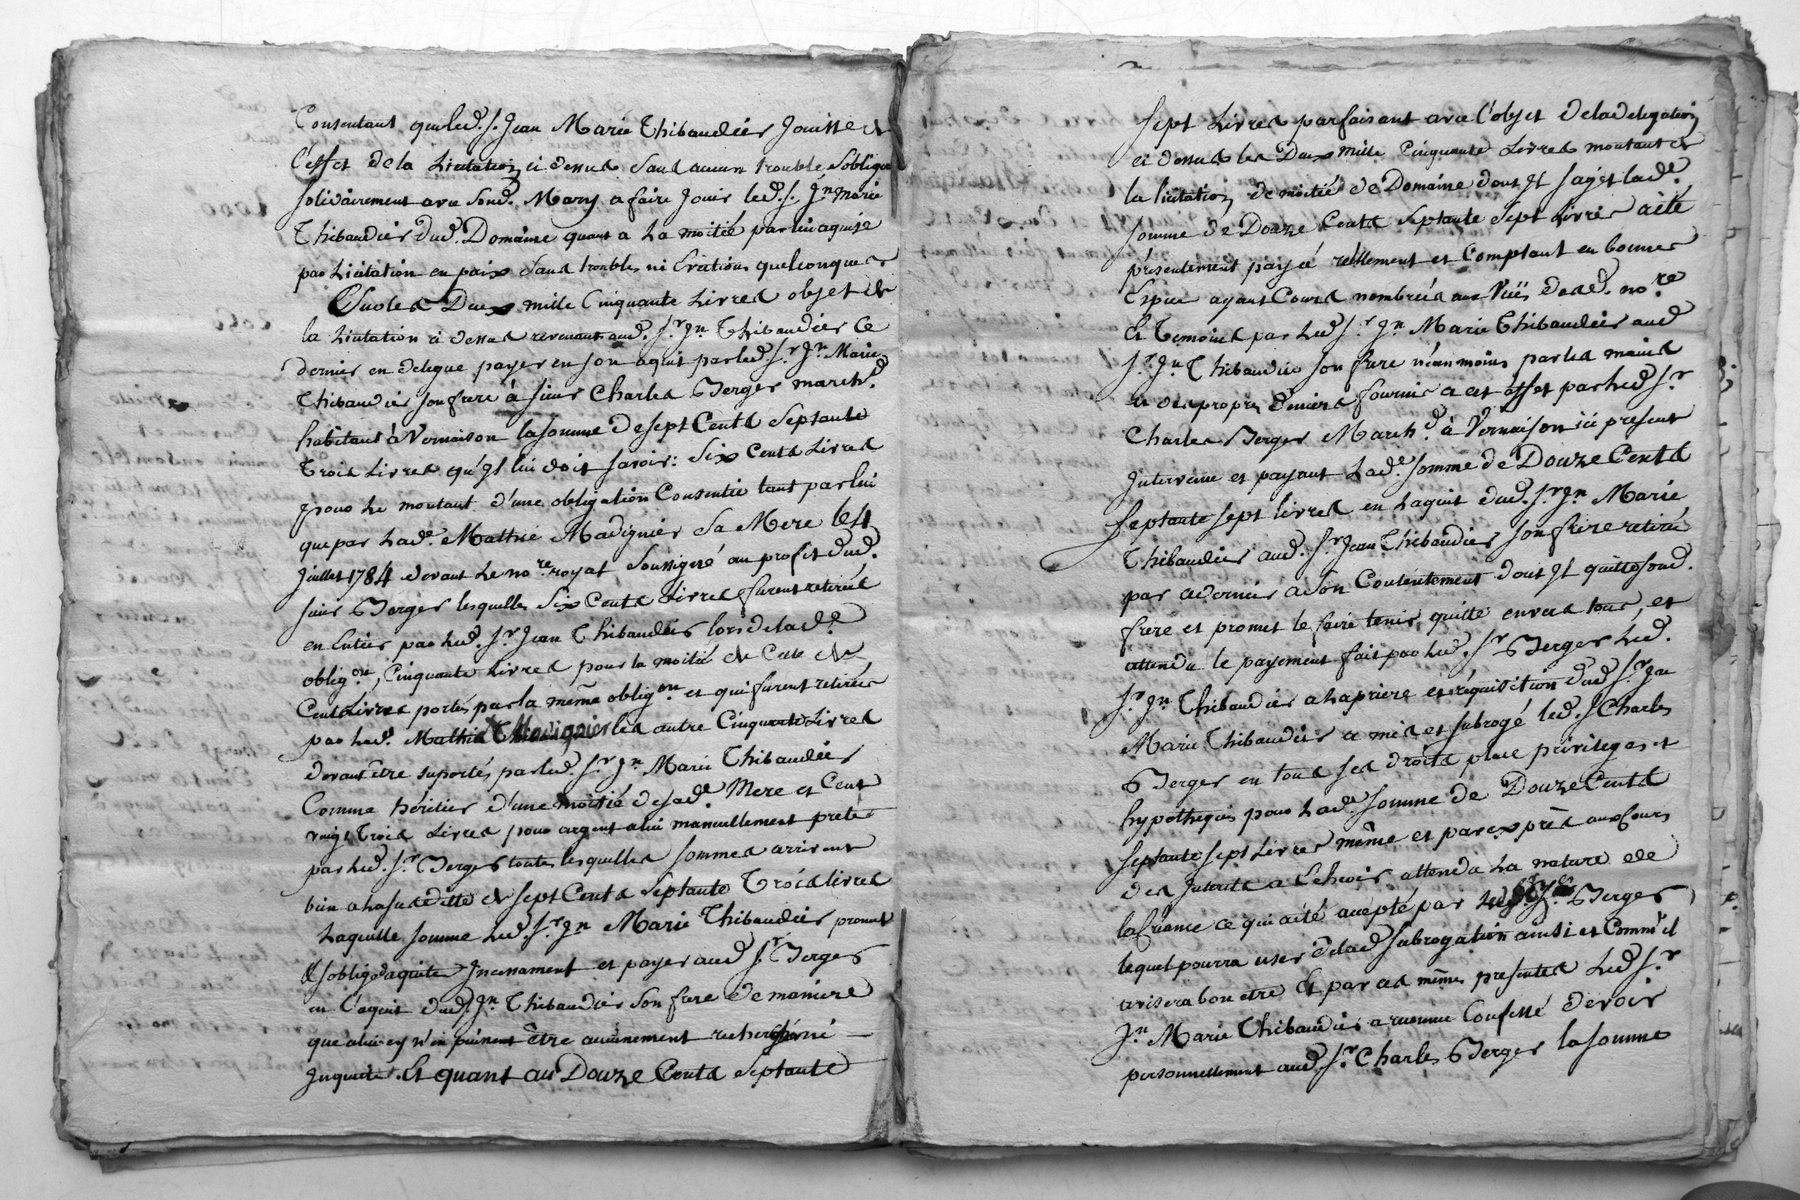 Consentant que led. S. Jean Marie Thibaudier Jouisse de
l'effet de la Licitation ci dessus sans aucun trouble s'oblique
solidairement avec Sond. Mary a faire Jouir led. S. Jn Marie
Thibaudier dud. Domaine quant a La moitié par lui aquise
par Licitation en paix sans troubles ni Evictions quelconques
Quoles Deux mille Cinquante Livres objet de
la Licitation ci dessus revenant aud. Sr. Jn Thibaudier Ce
dernier en delegue payer en son aquit par led. Sr Jn Marie
Thibaudier son frere à sieur Charles Berger march.d
habitant à Vernaison la somme de sept Cents Septante
Trois Livres qu'Jl lui doit savoir: Six Cents Livres
pour Le montant d'une obligation Consentie tant par lui
que par Lad.e Mathie Madignier Sa Mere le 4
Juillet 1784 devant Le no.re royal Soussigné au profit dud.
sieur Berger lesquelles Six Cents Livres furent retirées
en Entier par led. Sr Jean Thibaudier lors de lad.e
oblig.on, Cinquante Livres pour la moitié de Celle de
Cent Livres portés par la même oblig.on et qui furent retirées
par Lad. Mathie Madignier les autre Cinquante Livres
devant être suportés par led. Sr. Jn Marie Thibaudier
Comme héritier d'une moitié de sad.e Mere et Cent
vingt Trois Livres pour argent a lui manuellement prété
par led. Sr. Berger toutes lesquelles sommes arrivent
bien a la susditte de sept Cents Septante Trois livres
Laquelle somme led. Sr. Jn Marie Thibaudier promet
& s'oblige d'aquiter Jncessament et payer aud. Sr Berger
en l'aquit dud. Jn Thibaudier Son frere de maniere
que celui-cy n'en puisse être aucunement recherché ni
Jnquieté. Et quant aux Douze Cents Septante
sept Livres parfaisant avec l'objet de la delegation
ci dessus les Deux mille Cinquante Livres montant de
la licitation de moitié de Domaine dont Jl s'agit lad.e
somme de Douze Cents Septante Sept Livres a été
présentement payée réellement et Comptant en bonnes
Espece ayant Cours nombrées aux Vües desd. no.re
Et Temoins par Led. Sr. Jn Marie Thibaudier aud.
Sr. Jn Thibaudier son frere néanmoins par les mains
et des propres deniers fournis a cet effet par led. Sr
Charles Berger March.d à Vernaison ici present
Jntervenu et payant Lad.e somme de Douze Cents
Septante sept livres en Laquit dud. Sr. Jn Marie
Thibaudier aud. Sr. Jean Thibaudier son frère retirée
par ce dernier a son Contentement dont Jl quitte sond.
frère et promet le faire tenir quitte envers tous, et
attendu le payement fait par led. Sr Berger Led.
Sr. Jn Thibaudier a la priere et réquisition dud. Sr. Jn
Marie Thibaudier a mis et subrogé led. S. Charles
Berger en tous ses droits place privileges et
hypotheques pour Lad.e somme de Douze Cents
Septante sept Livres même et par exprès aux Cours
des Jnterets a Echeoir attendu La nature de
la Creance ce qui a été accepté par led. Sr. Berger
lequel pourra user de lad. Subrogation ainsi et Comm'il
avisera bon etre Et par ces même presentes Led. Sr
Jn Marie Thibaudier a reconnu Confessé devoir
personnellement aud. Sr. Charles Berger la somme